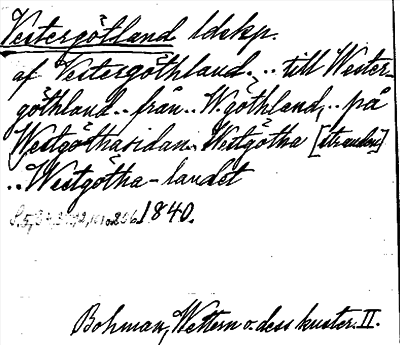 Vestergötland ldskp.
af Vestergöthland. .. till Wester-
göthland .. från .. W.göthland, .. på
Westgöthasidan. Westgötha [stranden]
.. Westgötha-landet
1840.
Bohman, Wettern o. dess kuster. II.